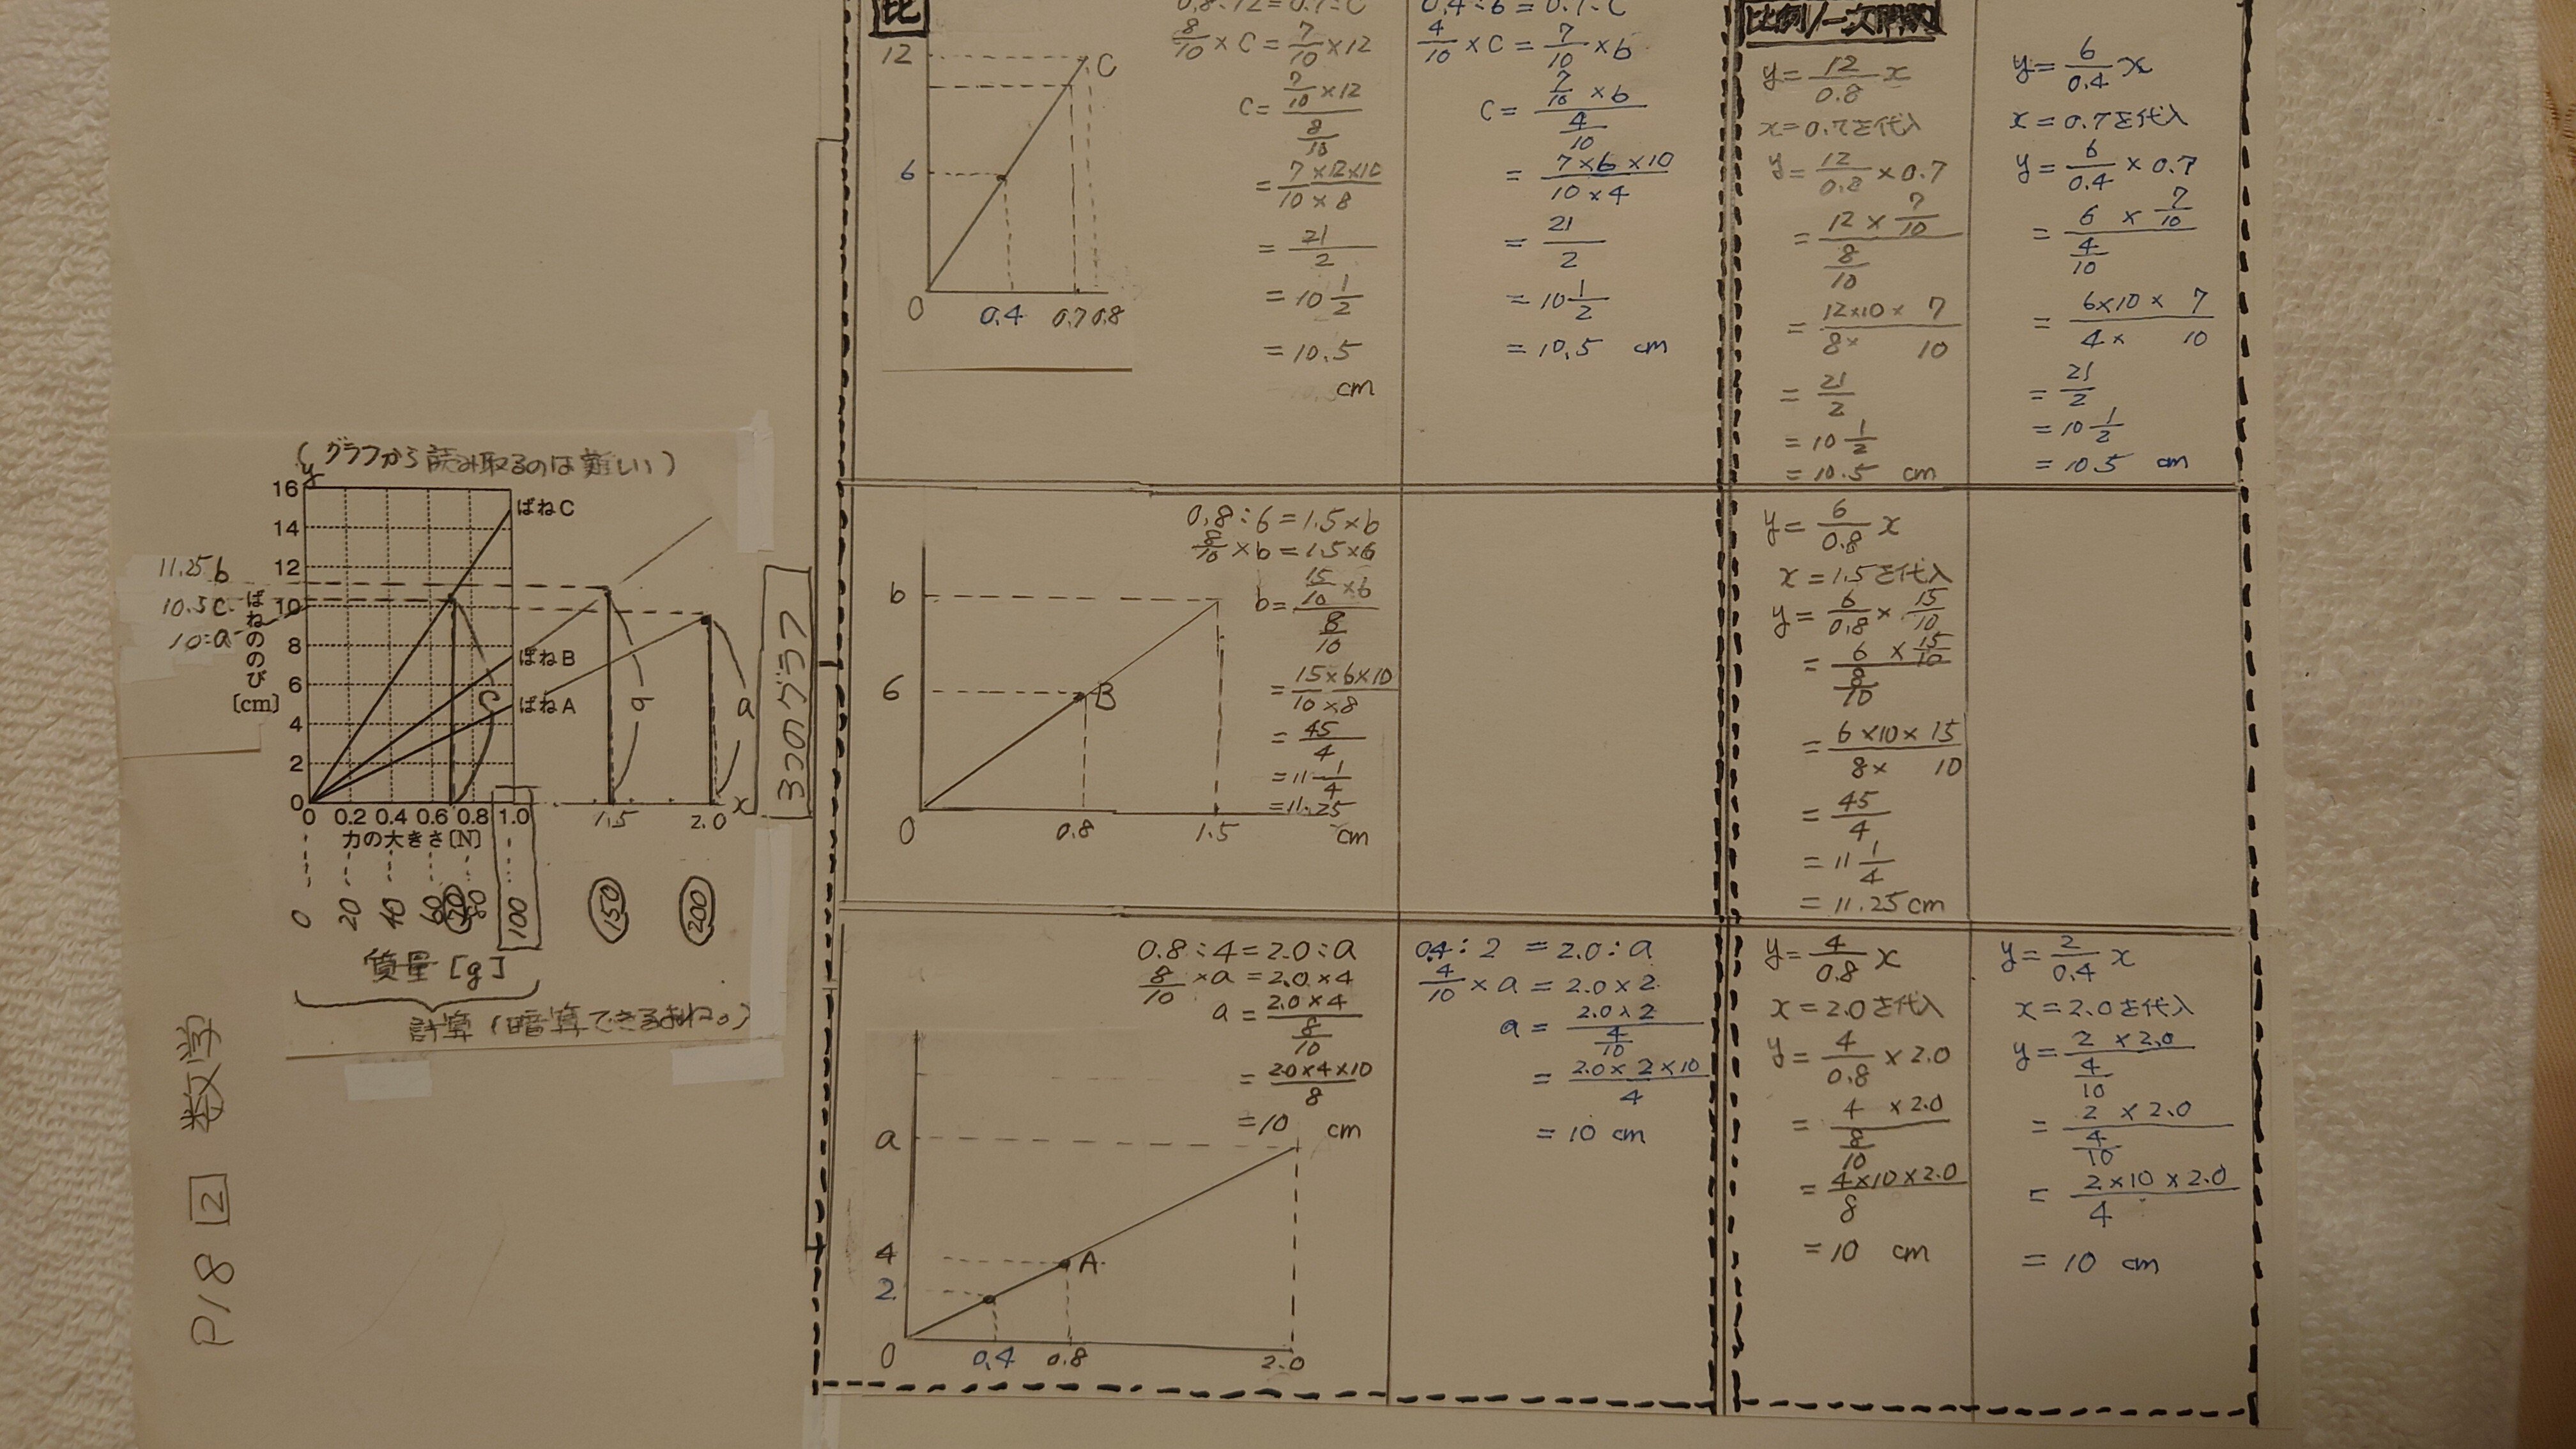 (グラフから読み取るのは難しい)
y
16
14
12
10
8
6
4
2
0
11.25 b
10.5 c
10:a
ばねののび
[cm]
ばねC
ばねB
ばねA
c
a
a
3つのグラフ
0 0.2 0.4 0.6 0.8 1.0 1.5 2.0 x
力の大きさ[N]
0 20 40 60 70 80 100 150 200
質量[g]
P18 2 数学
比
12
6
0 0.4 0.7 0.8
C
8/10 × C = 7/10 × 12
C = 7/10 × 12 / 8/10
= 7×12×10 / 10×8
= 21/2
= 10 1/2
= 10.5
cm
4/10 × C = 7/10 × 6
C = 7/10 × 6 / 4/10
= 7×6×10 / 10×4
= 21/2
= 10 1/2
= 10.5 cm
比例/一次関数
y = 12/0.8 x
x=0.7を代入
y = 12/0.8 × 0.7
= 12 × 7/10 / 8/10
= 12×10× 7 / 8× 10
= 21/2
= 10 1/2
= 10.5 cm
y = 6/0.4 x
x=0.7を代入
y = 6/0.4 × 0.7
= 6 × 7/10 / 4/10
= 6×10× 7 / 4× 10
= 21/2
= 10 1/2
= 10.5 cm
b
6
B
0 0.8 1.5
0.8:6=1.5×b
8/10 × b = 1.5×6
b = 15/10 × 6 / 8/10
= 15×6×10 / 10×8
= 45/4
= 11 1/4
= 11.25
cm
y = 6/0.8 x
x=1.5を代入
y = 6/0.8 × 15/10
= 6 × 15/10 / 8/10
= 6×10×15 / 8× 10
= 45/4
= 11 1/4
= 11.25cm
0.8:4=2.0:a
8/10 × a = 2.0×4
a = 2.0×4 / 8/10
= 2.0×4×10 / 8
= 10 cm
a
4
2
A
0 0.4 0.8 2.0
0.4:2 = 2.0:a
4/10 × a = 2.0×2
a = 2.0×2 / 4/10
= 2.0×2×10 / 4
= 10 cm
y = 4/0.8 x
x=2.0を代入
y = 4/0.8 × 2.0
= 4 ×2.0 / 8/10
= 4×10×2.0 / 8
= 10 cm
y = 2/0.4 x
x=2.0を代入
y = 2 ×2.0 / 4/10
= 2 × 2.0 / 4/10
= 2×10×2.0 / 4
= 10 cm